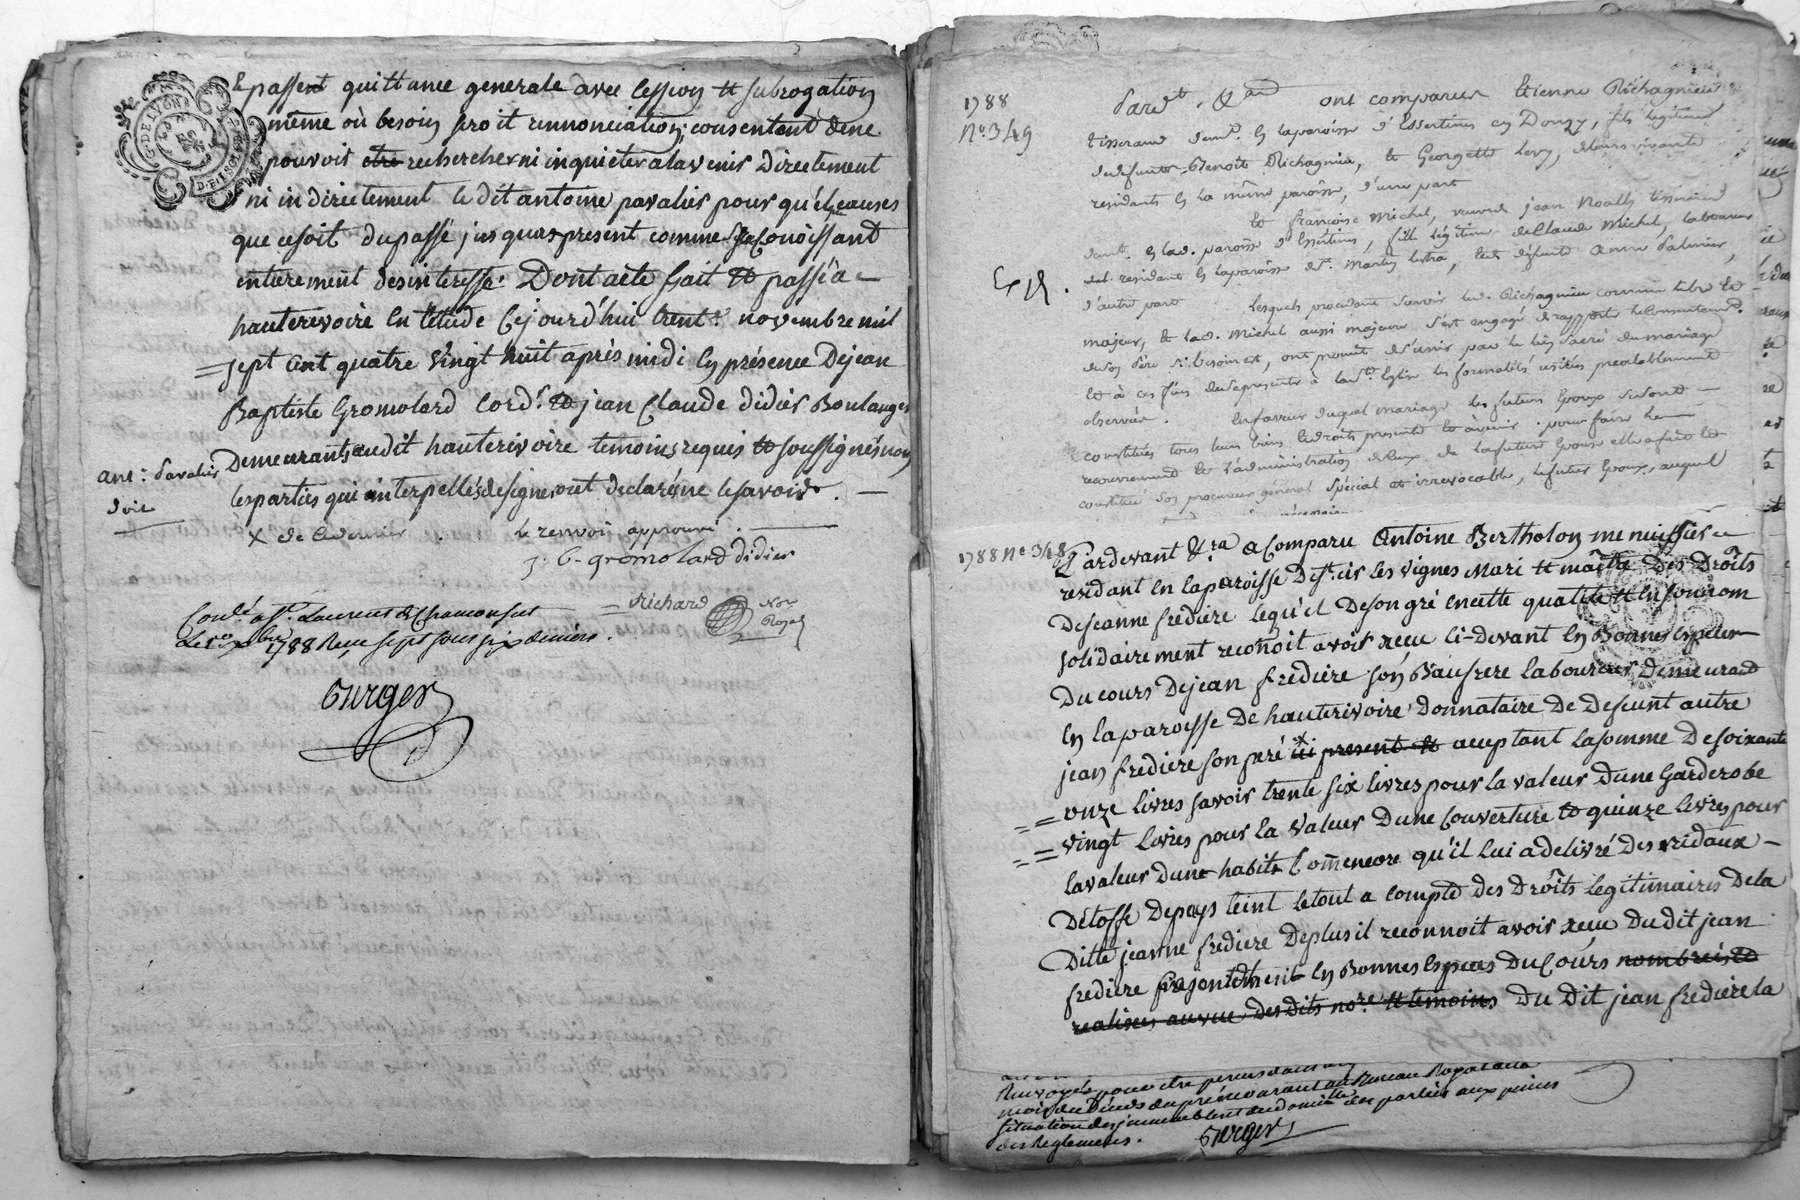 G. DE LYON
passent quittance generale avec Cession et subrogation
même où besoin seroit rennonciation, consentent dene
pouvoir etre rechercher ni inquieter alavenir Directement
ni indirectement le dit antoine pavalier pour quel causes
que cesoit du passé jusqua present comme se Conoissant
entierement desinteressé. Dont acte fait et passé a
hauterivoire En l'etude Cejourd'hui trente novembre mil
= sept Cent quatre vingt huit après midi En présence De jean
Baptiste Gromolard Cord.r et jean Claude didier Boulanger
Demeurants audit hauterivoire temoins requis et soussignés non
les parties qui interpellés designer ont declaré ne le savoir. —
ant: Pavalier
doit
X de le renvoi approuvé.
J. B. gromolard didier
Richard Nore
Royal
Con.lé a St. Laurent de Chamousset
Le 10 Xbre 1788 Reçu sept sous six deniers.
Surger
1788
No. 349
Pardt. &a ont comparus Etienne Richagnieu
tisserand demt. En laparoisse d'Essertines en Donzy, fils legitime
dedefunt Benoit Richagnieu, et Georgette
residants En la même paroisse, d'une part
Et françoise Michel, veuve jean
demt. En lad. paroisse d'Essertines, fille légitime de Claude Michel, laboureur
residant En laparoisse de St. Martin Lestra, et de defunte anne Palmier,
d'autre part Lesquels procedant savoir led. Richagnieu comme libre et
majeur, et lad. Michel aussi majeure s'est engagé de rapporter le Consentemt.
deson père si besoin est, ont promis de s'unir par le lien sacré du mariage
et à ces fins de se presenter à la ste. Eglise les formalités usitées prealablement
observées. En faveur duquel mariage les futurs Epoux se sont —
constitués tous leurs biens et droits presents et à venir, pour faire le —
recouvrement et l'administration de ceux de la future Epouse elle a fait et
constitué son procureur général spécial et irrevocable, le futur Epoux, auquel
1788 No. 348
Pardevant &.ra a Comparu Antoine Bertholon menuissier
residant En la paroisse De St. Cir les vignes Mari et maître Des Droits
De jeanne fredière lequ'el De son gré En cette qualité et En son nom
solidairement reconnoit avoir reçu Ci-devant En Bonnes Especes
Du cours De jean fredière son Beaufrere laboureur Demeurant
En la paroisse De hauterivoire Donnataire De Defeunt autre
jean fredière son père ici present et acceptant la somme De soixante
onze livres savoir trente six livres pour la valeur Dune Garderobe
= = vingt livres pour la Valeur Dune Couverture et quinze livres pour
= = la valeur Dune habits Comme encore qu'il lui a delivré Des ridaux —
D'étoffe Depays teint le tout a compte des Droits Legitimaires De la
Ditte jeanne fredière De plus il reconnoit avoir reçu Du dit jean
fredière presentement En Bonnes Especes Du Cours nombreés et
realisées au vue Desdits nore. et temoins Du Dit jean fredière la
Renvoyés pour etre percus dans
mois du Décès du prémourant au Bureau Royal
situation des immeubles et du domicile des parties aux peines
des Reglements.
Surger